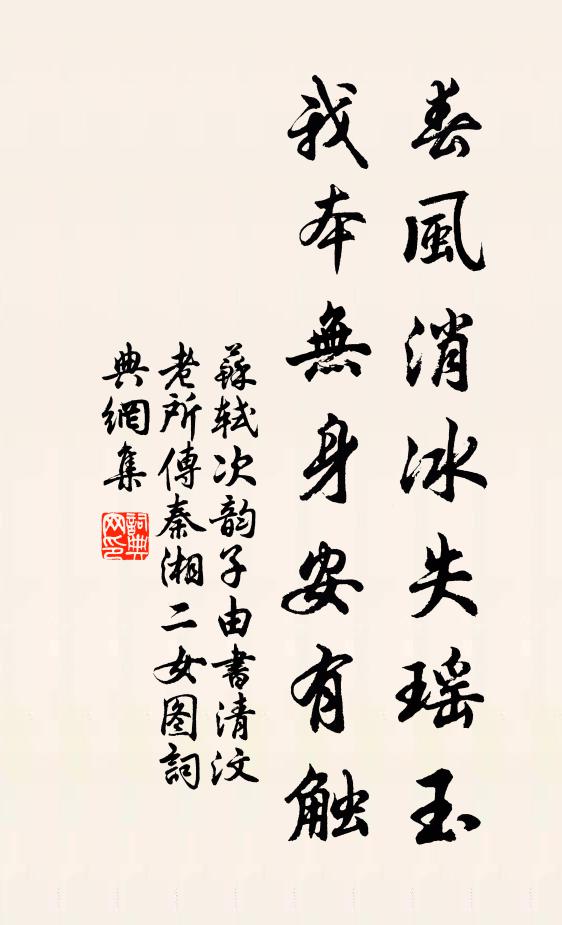 春風消冰失瑶玉
我本無身安有触
蘇轼次韵子由書清汶
老所傳秦湘二女图詞
典網集
詞典網印